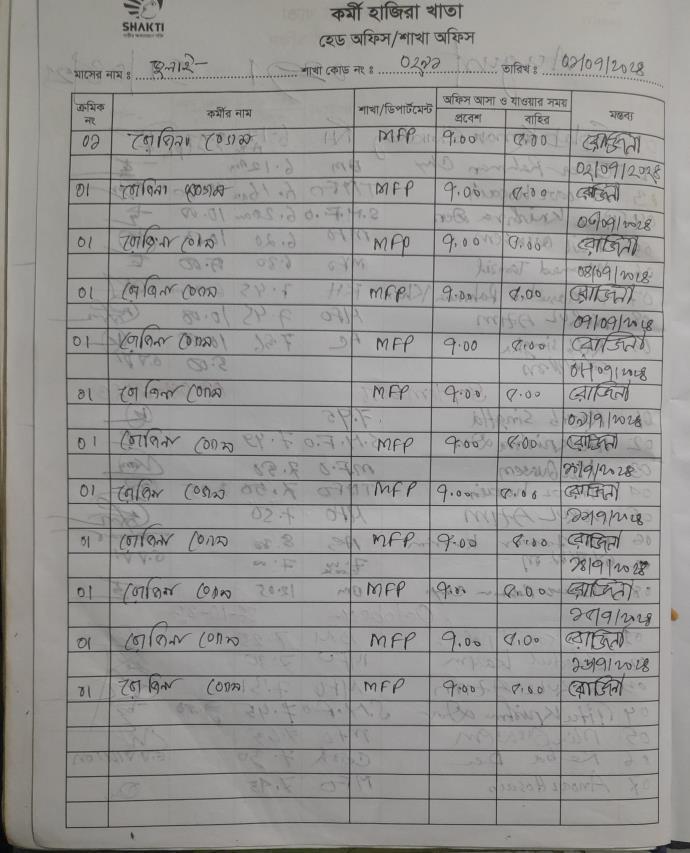 SHAKTI
কর্মী হাজিরা খাতা
হেড অফিস/শাখা অফিস
মাসের নাম : জুলাই- শাখা কোড নং : তারিখ : ০১/০৭/২০২৪
ক্রমিক নং কর্মীর নাম শাখা/ডিপার্টমেন্ট অফিস আসা ও যাওয়ার সময় মন্তব্য
প্রবেশ বাহির
০১ রোজিনা বেগম MFP ৭.০০ ৫.০০ রোজিনা
০২/০৭/২০২৪
০১ রোজিনা বেগম MFP ৭.০০ ৫.০০ রোজিনা
০৩/০৭/২০২৪
০১ রোজিনা বেগম MFP ৭.০০ ৫.০০ রোজিনা
০৪/০৭/২০২৪
০১ রোজিনা বেগম MFP ৭.০০ ৫.০০ রোজিনা
০৭/০৭/২০২৪
০১ রোজিনা বেগম MFP ৭.০০ ৫.০০ রোজিনা
০৮/০৭/২০২৪
০১ রোজিনা বেগম MFP ৭.০০ ৫.০০ রোজিনা
০৯/৭/২০২৪
০১ রোজিনা বেগম MFP ৭.০০ ৫.০০ রোজিনা
০১ রোজিনা বেগম MFP ৭.০০ ৫.০০ রোজিনা
০১ রোজিনা বেগম MFP ৭.০০ ৫.০০ রোজিনা
১৪/৭/২০২৪
০১ রোজিনা বেগম MFP ৭.০০ ৫.০০ রোজিনা
১৫/৭/২০২৪
০১ রোজিনা বেগম MFP ৭.০০ ৫.০০ রোজিনা
১৬/৭/২০২৪
০১ রোজিনা বেগম MFP ৭.০০ ৫.০০ রোজিনা